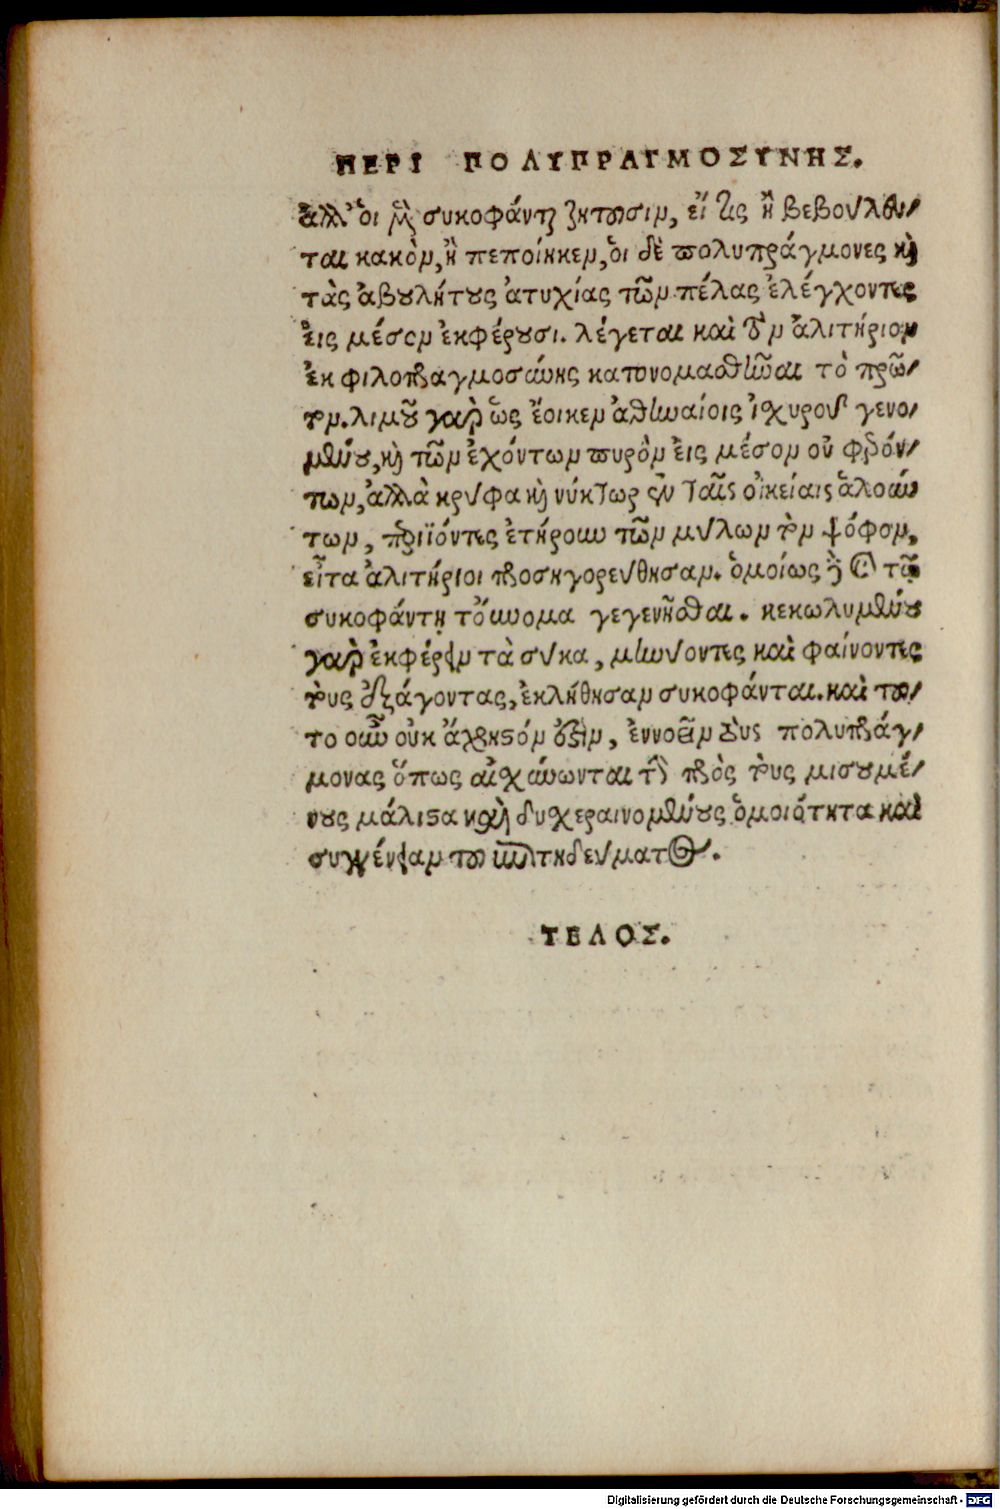 ΠΕΡΙ ΠΟΛΥΠΡΑΓΜΟΣΥΝΗΣ.
ἀλλ᾽ ὁι μὲν συκοφάνται ζητοῦσιν, εἴ τις ἢ βεβούλευ/
ται κακὸν, ἢ πεποίηκεν, ὁι δὲ πολυπράγμονες καὶ
τὰς ἀβουλήτους ἀτυχίας τῶν πέλας ἐλέγχοντες
ἐις μέσον ἐκφέρουσι. λέγεται καὶ τὸν ἀλιτήριον
ἐκ φιλοπραγμοσύνης κατονομασθῆναι τὸ πρῶ/
τον. λιμοῦ γὰρ ὡς ἔοικεν ἀθηναίοις ἰσχυροῦ γενο/
μένου, καὶ τῶν ἐχόντων πυρὸν ἐις μέσον οὐ φρόν/
των, ἀλλὰ κρύφα καὶ νύκτωρ ἐν ταῖς οἰκείαις ἀλούν
των, περιϊόντες ἐτήρουν τῶν μύλων τὸν ψόφον,
εἶτα ἀλιτήριοι προσηγορεύθησαν. ὁμοίως δὲ καὶ τῷ
συκοφάντῃ τὄυνομα γεγενῆσθαι. κεκωλυμένου
γὰρ ἐκφέρειν τὰ σύκα, μηνύοντες καὶ φαίνοντες
τοὺς ἐξάγοντας, ἐκλήθησαν συκοφάνται. καὶ τοῦ/
το οὖν οὐκ ἄχρηστόν ἐστιν, ἐννοεῖν τοὺς πολυπράγ/
μονας ὅπως αἰσχύνωνται τὴν πρὸς τοὺς μισουμέ/
νους μάλιστα καὶ δυσχεραινομένους ὁμοιότητα καὶ
συγγένειαν τοῦ ἐπιτηδεύματος.
ΤΕΛΟΣ.
Digitalisierung gefördert durch die Deutsche Forschungsgemeinschaft - DFG